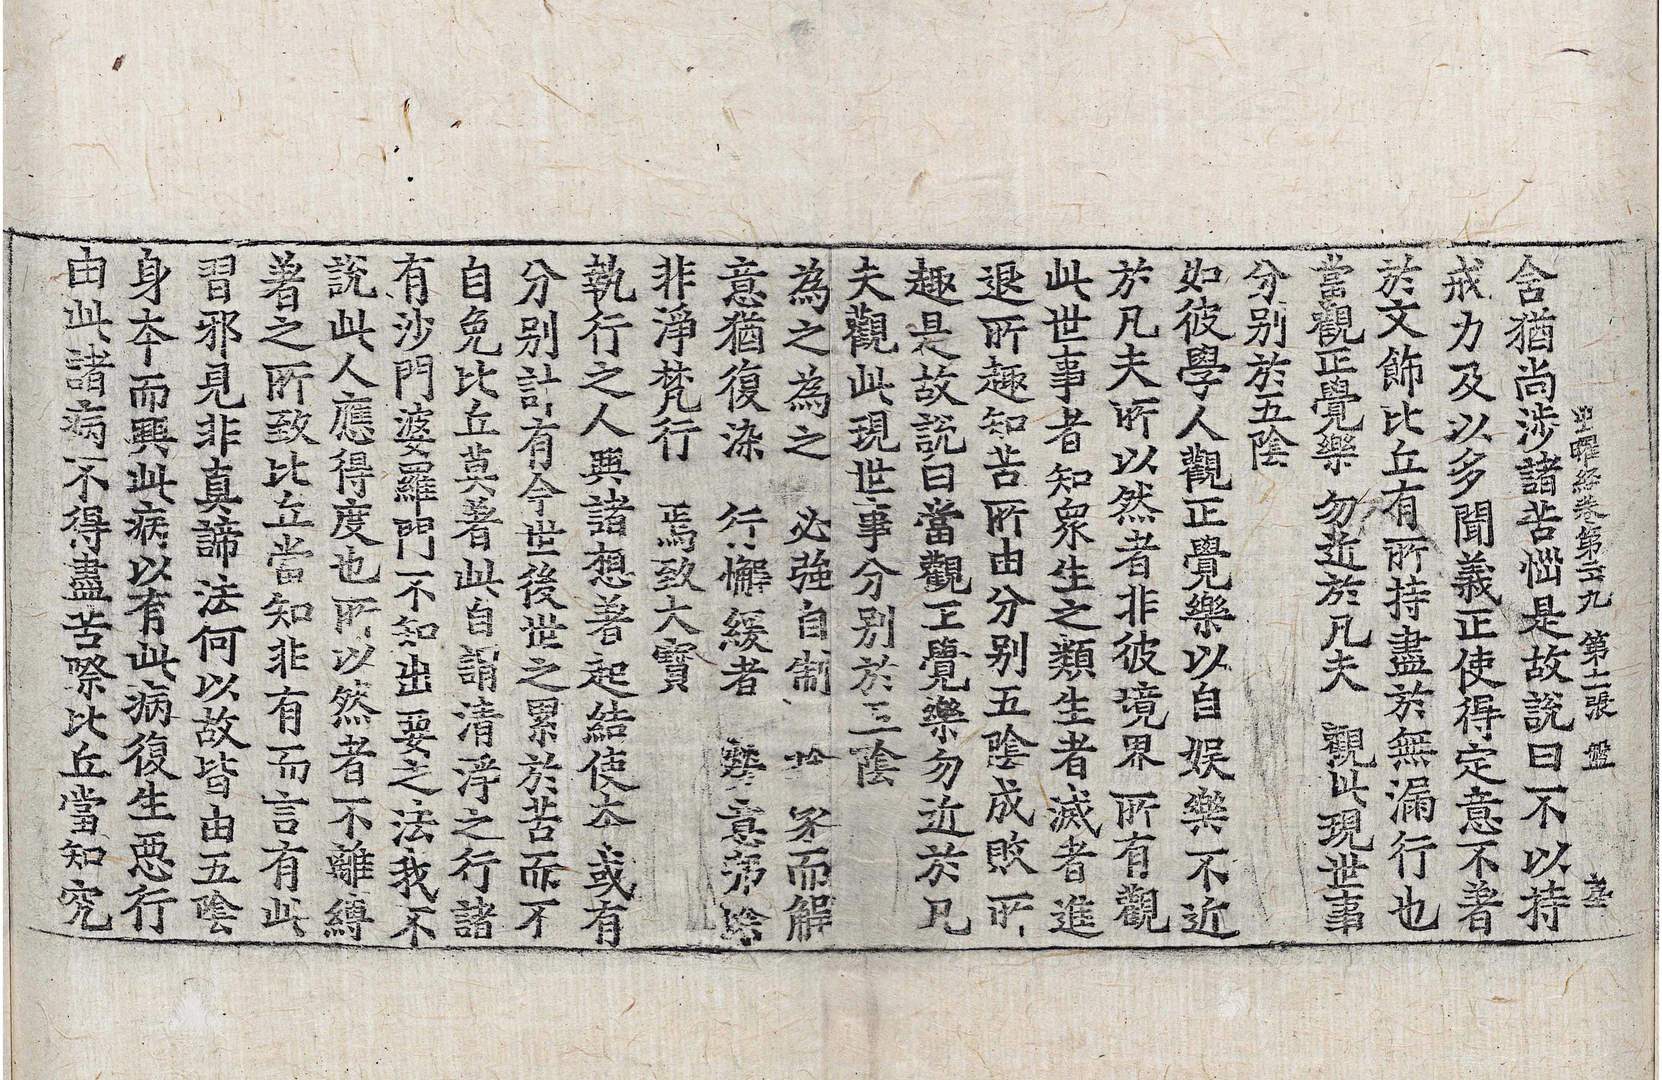 出曜經卷第二九 第十二張 盤
舍猶尚涉諸苦惱是故說曰不以持
戒力及以多聞義正使得定意不著
於文飾比丘有所持盡於無漏行也
當觀正覺樂 勿近於凡夫 觀此現世事
分別於五陰
如彼學人觀正覺樂以自娛樂不近
於凡夫所以然者非彼境界所有觀
此世事者知衆生之類生者滅者進
退所趣知苦所由分別五陰成敗所
趣是故說曰當觀正覺樂勿近於凡
夫觀此現世事分別於五陰
為之為之 必強自制 捨家而解
意猶復染 行懈緩者 勞意弗除
非淨梵行 焉致大寶
執行之人興諸想著起結使本或有
分別計有今世後世之累於苦而不
自免比丘莫著此自謂清淨之行諸
有沙門婆羅門不知出要之法我不
說此人應得度也所以然者不離縛
著之所致比丘當知非有而言有此
習邪見非真諦法何以故皆由五陰
身本而興此病以有此病復生惡行
由此諸病不得盡苦際比丘當知究